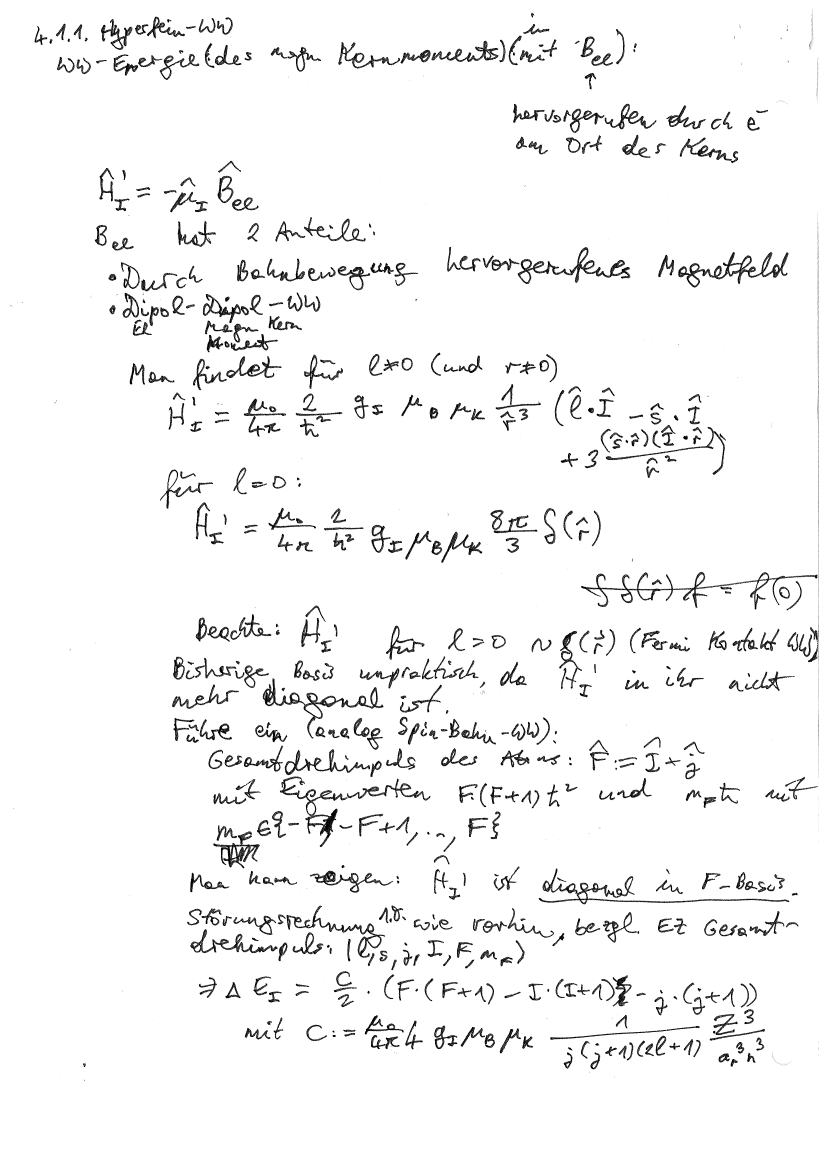 4.1.1. Hyperfein-WW
in
WW-Energie (des magn Kernmoments) (mit B_el):
↑
hervorgerufen durch e⁻
am Ort des Kerns
Ĥ_I' = -μ̂_I B̂_el
B_el hat 2 Anteile:
• Durch Bahnbewegung hervorgerufenes Magnetfeld
• Dipol-Dipol-WW
El Magn Kern
Moment
Man findet für l≠0 (und r≠0)
Ĥ_I' = μ₀/4π 2/ħ² g_I μ_B μ_K 1/r̂³ (l̂·Î - ŝ·Î
+ 3 (ŝ·r̂)(Î·r̂)/r̂²)
für l=0:
Ĥ_I' = μ₀/4π 2/ħ² g_I μ_B μ_K 8π/3 δ(r̂)
∫ δ(r̂) f = f(0)
Beachte: Ĥ_I' für l=0 ~ δ(r̂) (Fermi Kontakt WW)
Bisherige Basis unpraktisch, da Ĥ_I' in ihr nicht
mehr diagonal ist.
Führe ein (analog Spin-Bahn-WW):
Gesamtdrehimpuls des Atoms: F̂ := Î + ĵ
mit Eigenwerten F·(F+1)ħ² und m_F ħ mit
m_F ∈ {-F, -F+1, .., F}
Man kann zeigen: Ĥ_I' ist diagonal in F-Basis.
Störungsrechnung 1.O. wie vorhin, bezgl. EZ Gesamt-
drehimpuls: |l, s, j, I, F, m_F⟩
⇒ Δ E_I = C/2 · (F·(F+1) - I·(I+1) - j·(j+1))
mit C := μ₀/4π 4 g_I μ_B μ_K 1/(j(j+1)(2l+1)) Z³/(a_r³ n³)